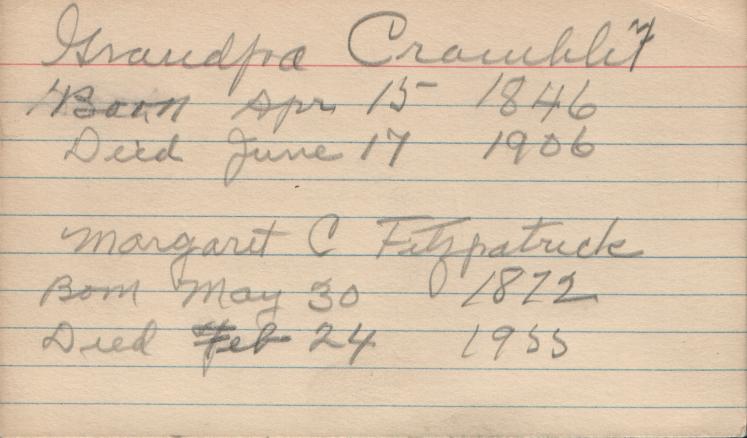 Grandpa Cramblit
Born Apr 15 1846
Died June 17 1906
Margaret C Fitzpatrick
Born May 30 1872
Died Feb 24 1955